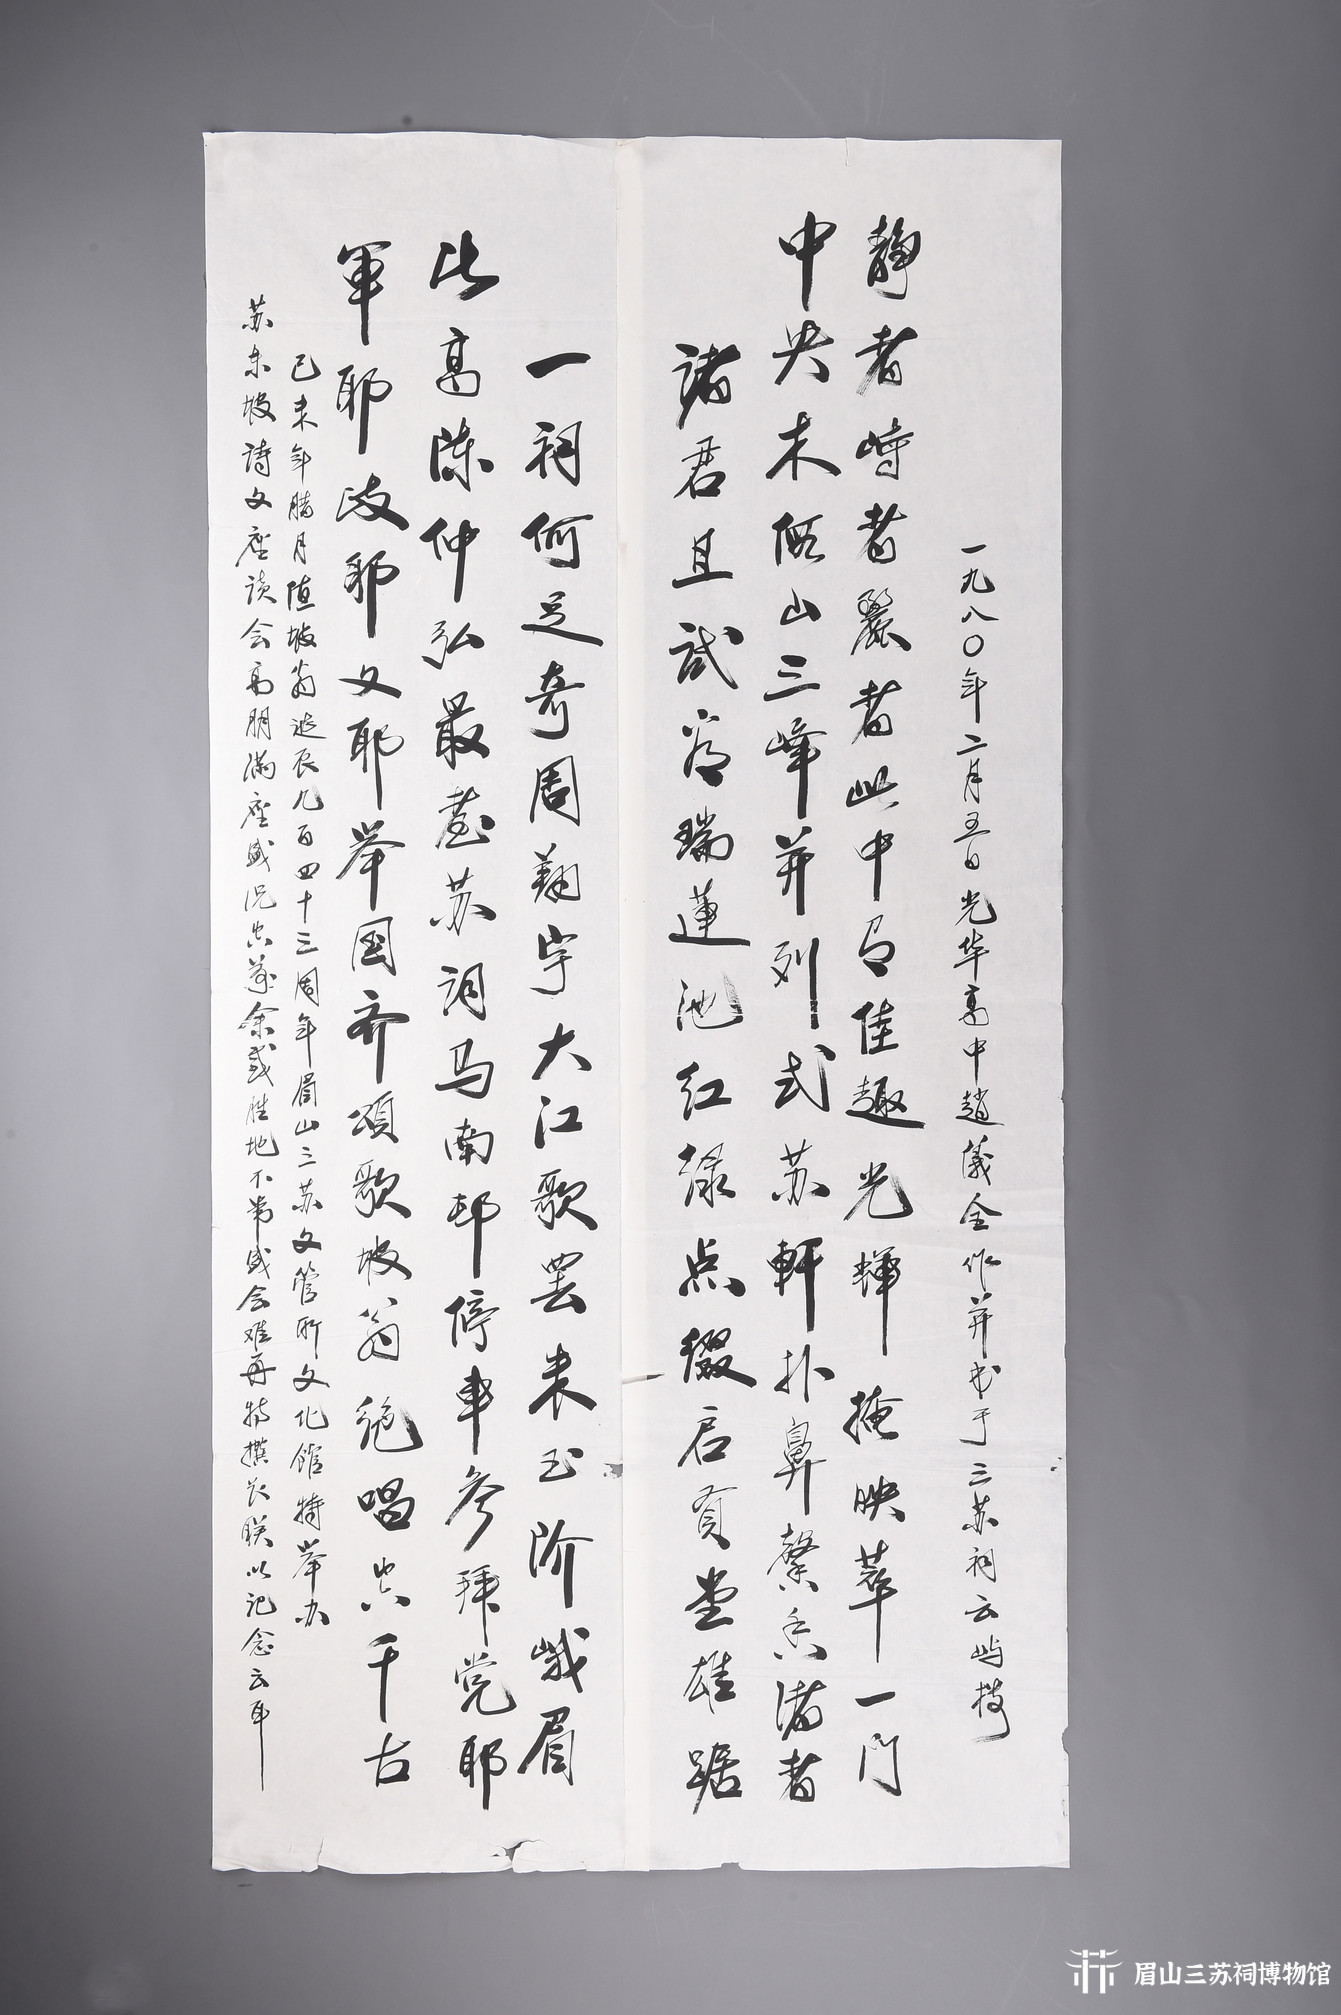 一祠何足奇周翔宇大江歌罢来玉阶峨眉
比高陈仲弘最爱苏词马南邨停车参拜党耶
军耶政耶文耶举国齐颂歌坡翁绝唱空千古
己未年腊月值坡翁诞辰九百四十三周年眉山三苏文管所文化馆特举办
苏东坡诗文座谈会高朋满座盛况空前余感胜地不常盛会难再特撰长联以记念云耳
诸君且试看瑞莲池红绿点缀启贤堂雄踞
中央木假山三峰并列式苏轩扑鼻馨香渚者
静者峙者丽者此中有佳趣光辉掩映萃一门
一九八〇年二月五日光华高中赵仪全作并书于三苏祠云屿楼
眉山三苏祠博物馆